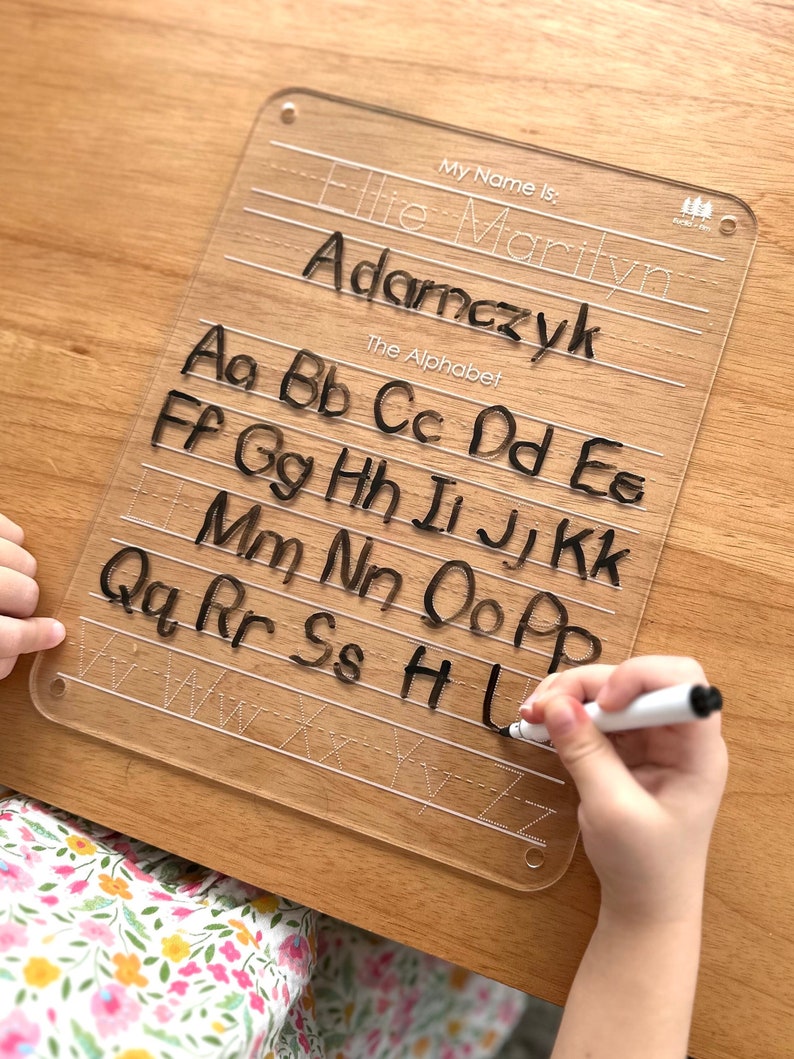 My Name Is:
Ellie Marilyn
Adamczyk
The Alphabet
Aa Bb Cc Dd Ee
Ff Gg Hh Ii Jj Kk
Ll Mm Nn Oo Pp
Qq Rr Ss H U
Vv Ww Xx Yy Zz